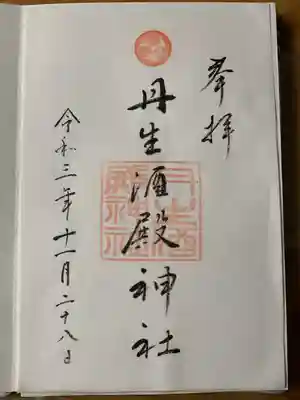 奉拝
丹生酒殿神社
令和三年十一月二十八日